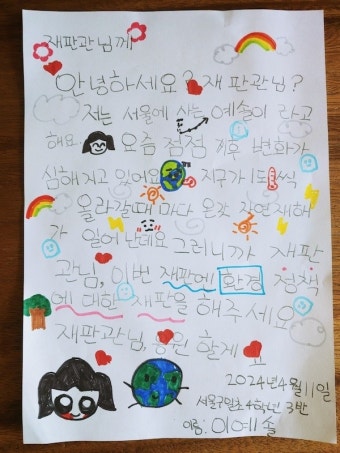 재판관님께
안녕하세요? 재판관님?
저는 서울에 사는 예솔이 라고
해요. 요즘 점점 기후 변화가
심해지고 있어요 지구가 1도씩
올라갈때 마다 온갖 자연재해
가 일어 난데요 그러니까 재판
관님, 이번 재판에 환경 정책
에 대한 재판을 해주세요
재판관님, 응원 할게요
2024년 4월 11일
서울구일초 4학년 3반
이름: 이예솔